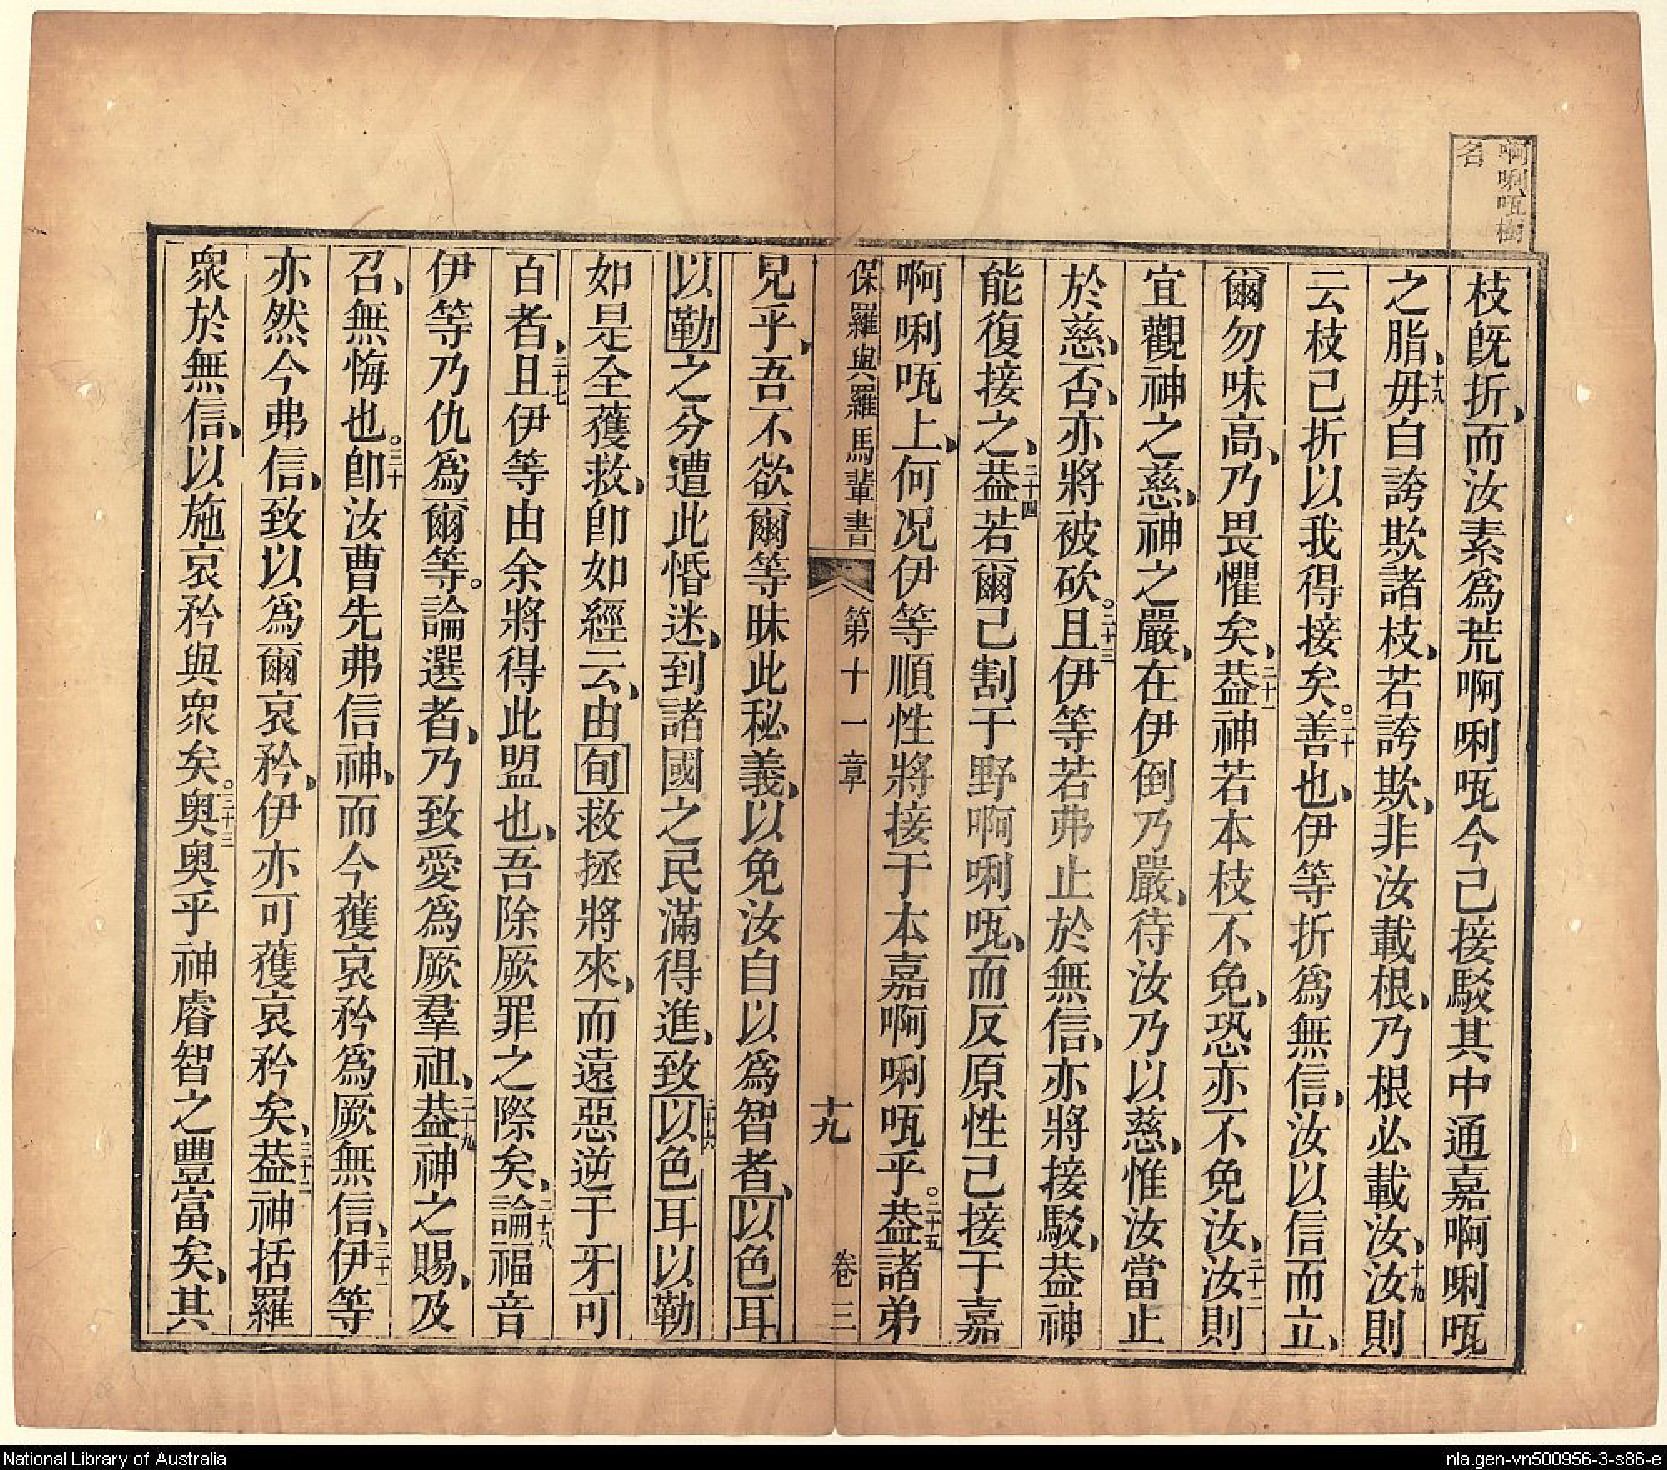 啊唎㕸樹
名
枝既折、而汝素爲荒啊唎㕸今己接駁其中通嘉啊唎㕸
之脂、十八毋自誇欺諸枝、若誇欺、非汝載根、乃根必載汝、十九汝則
云枝己折以我得接矣。二十善也、伊等折爲無信、汝以信而立、
爾勿味高、乃畏懼矣、二十一葢神若本枝不免、恐亦不免汝、二十二汝則
宜觀神之慈、神之嚴、在伊倒乃嚴、待汝乃以慈、惟汝當止
於慈、否、亦將被砍。二十三且伊等若弗止於無信、亦將接駁、葢神
能復接之、二十四葢若爾己割于野啊唎㕸、而反原性己接于嘉
啊唎㕸上、何况伊等順性將接于本嘉啊唎㕸乎。二十五葢諸弟
保羅與羅馬輩書 第十一章 十九 卷三
兄乎、吾不欲爾等昧此秘義、以免汝自以爲智者、以色耳
以勒之分遭此惛迷、到諸國之民滿得進、致二十六以色耳以勒
如是全獲救、卽如經云、由旬救拯將來、而遠惡逆于牙可
百者、二十七且伊等由余將得此盟也、吾除厥罪之際矣、二十八論福音
伊等乃仇爲爾等。論選者、乃致愛爲厥羣祖、二十九葢神之賜、及
召、無悔也。三十卽汝曹先弗信神、而今獲哀矜爲厥無信、三十一伊等
亦然今弗信、致以爲爾哀矜、伊亦可獲哀矜矣、三十二葢神括羅
衆於無信、以施哀矜與衆矣。三十三奥奥乎神睿智之豐富矣、其
National Library of Australia
nla.gen-vn500956-3-s86-e